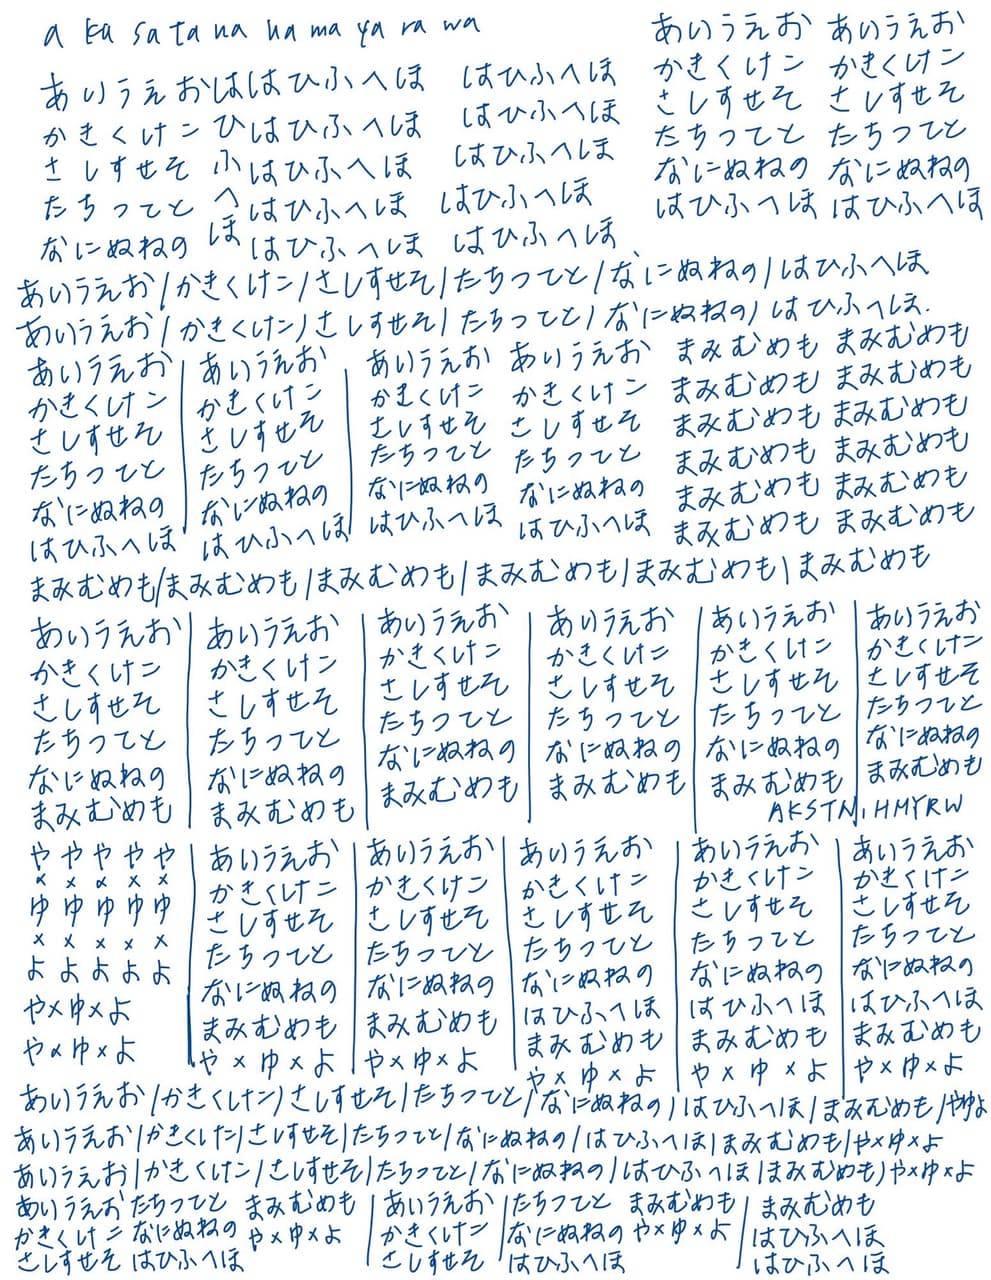 a ka sa ta na ha ma ya ra wa
あいうえお は はひふへほ はひふへほ
かきくけこ ひ はひふへほ はひふへほ
さしすせそ ふ はひふへほ はひふへほ
たちつてと へ はひふへほ はひふへほ
なにぬねの ほ はひふへほ はひふへほ
あいうえお あいうえお
かきくけこ かきくけこ
さしすせそ さしすせそ
たちつてと たちつてと
なにぬねの なにぬねの
はひふへほ はひふへほ
あいうえお/かきくけこ/さしすせそ/たちつてと/なにぬねの/はひふへほ
あいうえお/かきくけこ/さしすせそ/たちつてと/なにぬねの/はひふへほ.
あいうえお | あいうえお | あいうえお あいうえお まみむめも まみむめも
かきくけこ | かきくけこ | かきくけこ かきくけこ まみむめも まみむめも
さしすせそ | さしすせそ | さしすせそ さしすせそ まみむめも まみむめも
たちつてと | たちつてと | たちつてと たちつてと まみむめも まみむめも
なにぬねの | なにぬねの | なにぬねの なにぬねの まみむめも まみむめも
はひふへほ | はひふへほ | はひふへほ はひふへほ まみむめも まみむめも
まみむめも/まみむめも/まみむめも/まみむめも/まみむめも/まみむめも
あいうえお | あいうえお | あいうえお | あいうえお | あいうえお | あいうえお
かきくけこ | かきくけこ | かきくけこ | かきくけこ | かきくけこ | かきくけこ
さしすせそ | さしすせそ | さしすせそ | さしすせそ | さしすせそ | さしすせそ
たちつてと | たちつてと | たちつてと | たちつてと | たちつてと | たちつてと
なにぬねの | なにぬねの | なにぬねの | なにぬねの | なにぬねの | なにぬねの
まみむめも | まみむめも | まみむめも | まみむめも | まみむめも | まみむめも
AKSTN, HMYRW
や や や や や
× × × × ×
ゆ ゆ ゆ ゆ ゆ
× × × × ×
よ よ よ よ よ
や×ゆ×よ
や×ゆ×よ
あいうえお | あいうえお | あいうえお | あいうえお | あいうえお
かきくけこ | かきくけこ | かきくけこ | かきくけこ | かきくけこ
さしすせそ | さしすせそ | さしすせそ | さしすせそ | さしすせそ
たちつてと | たちつてと | たちつてと | たちつてと | たちつてと
なにぬねの | なにぬねの | なにぬねの | なにぬねの | なにぬねの
まみむめも | まみむめも | はひふへほ | はひふへほ | はひふへほ
や×ゆ×よ | や×ゆ×よ | まみむめも | まみむめも | まみむめも
や×ゆ×よ | や×ゆ×よ | や×ゆ×よ
あいうえお/かきくけこ/さしすせそ/たちつてと/なにぬねの/はひふへほ/まみむめも/やゆよ
あいうえお/かきくけこ/さしすせそ/たちつてと/なにぬねの/はひふへほ/まみむめも/や×ゆ×よ
あいうえお/かきくけこ/さしすせそ/たちつてと/なにぬねの/はひふへほ/まみむめも/や×ゆ×よ
あいうえお たちつてと まみむめも | あいうえお | たちつてと まみむめも | まみむめも
かきくけこ なにぬねの や×ゆ×よ | かきくけこ | なにぬねの や×ゆ×よ | はひふへほ
さしすせそ はひふへほ | さしすせそ | はひふへほ | はひふへほ